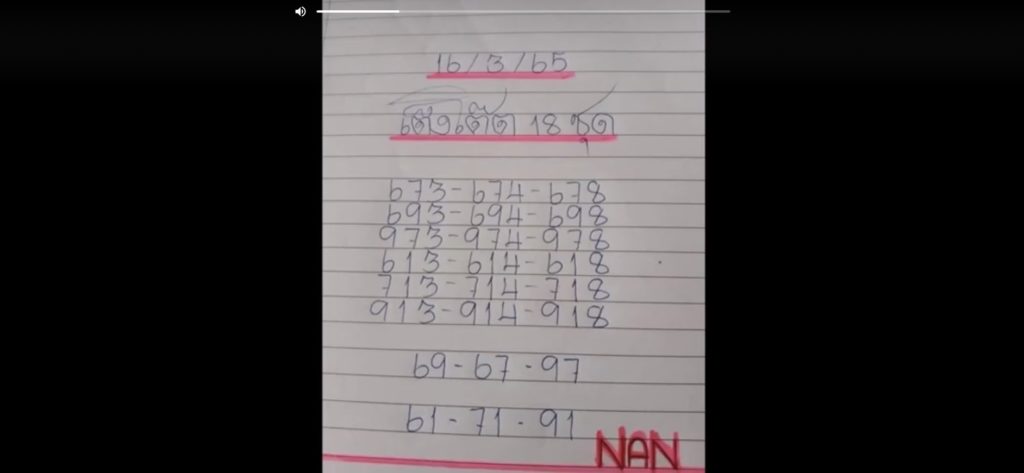 16/3/65
เต็งโต๊ด 18 ชุด
673-674-678
693-694-698
973-974-978
613-614-618
713-714-718
913-914-918
69-67-97
61-71-91
NAN